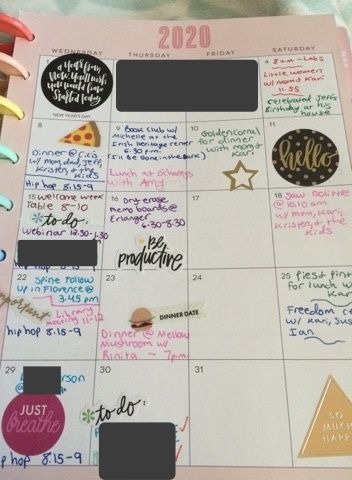 2020
WEDNESDAY
THURSDAY
FRIDAY
SATURDAY
a year from
now you'll wish
you would have
started today
NEW YEAR'S DAY
4 8am - Labs
Little Women
w/ mom & Kari
11:55
celebrated Jeff's
Birthday at his
house
8
Dinner @ Cici's
w/ mom, dad, Jeff,
Kristen, & the
kids
Hip hop 8:15-9
9 Book Club w/
Michelle at the
Irish Heritage Center
6:30 p.m.
Lunch at
with Amy
10
Golden Corral
for dinner
with mom &
Kari
11
hello
15 Welcome Week
Table 8-10
to do:
Webinar 12:30-1:30
16 Dry erase
memo boards @
Erlanger
6:30-8:30
be
productive
17
18 Saw Dolittle
@ 10:10 am
w/ mom, Kari,
Kristen, &
the kids
22
Spine Follow
up in Florence @
3:45 pm
important
Library
meeting 11-12
hip hop 8:15-9
23
DINNER DATE
Dinner @ Mellow
Mushroom w/
Rinita - 7pm
24
25
for lunch w/
Kari
Freedom
w/ Kari,
Ian
29
JUST
breathe
hip hop 8:15-9
30
to do:
31
SO
MUCH
HAPPY